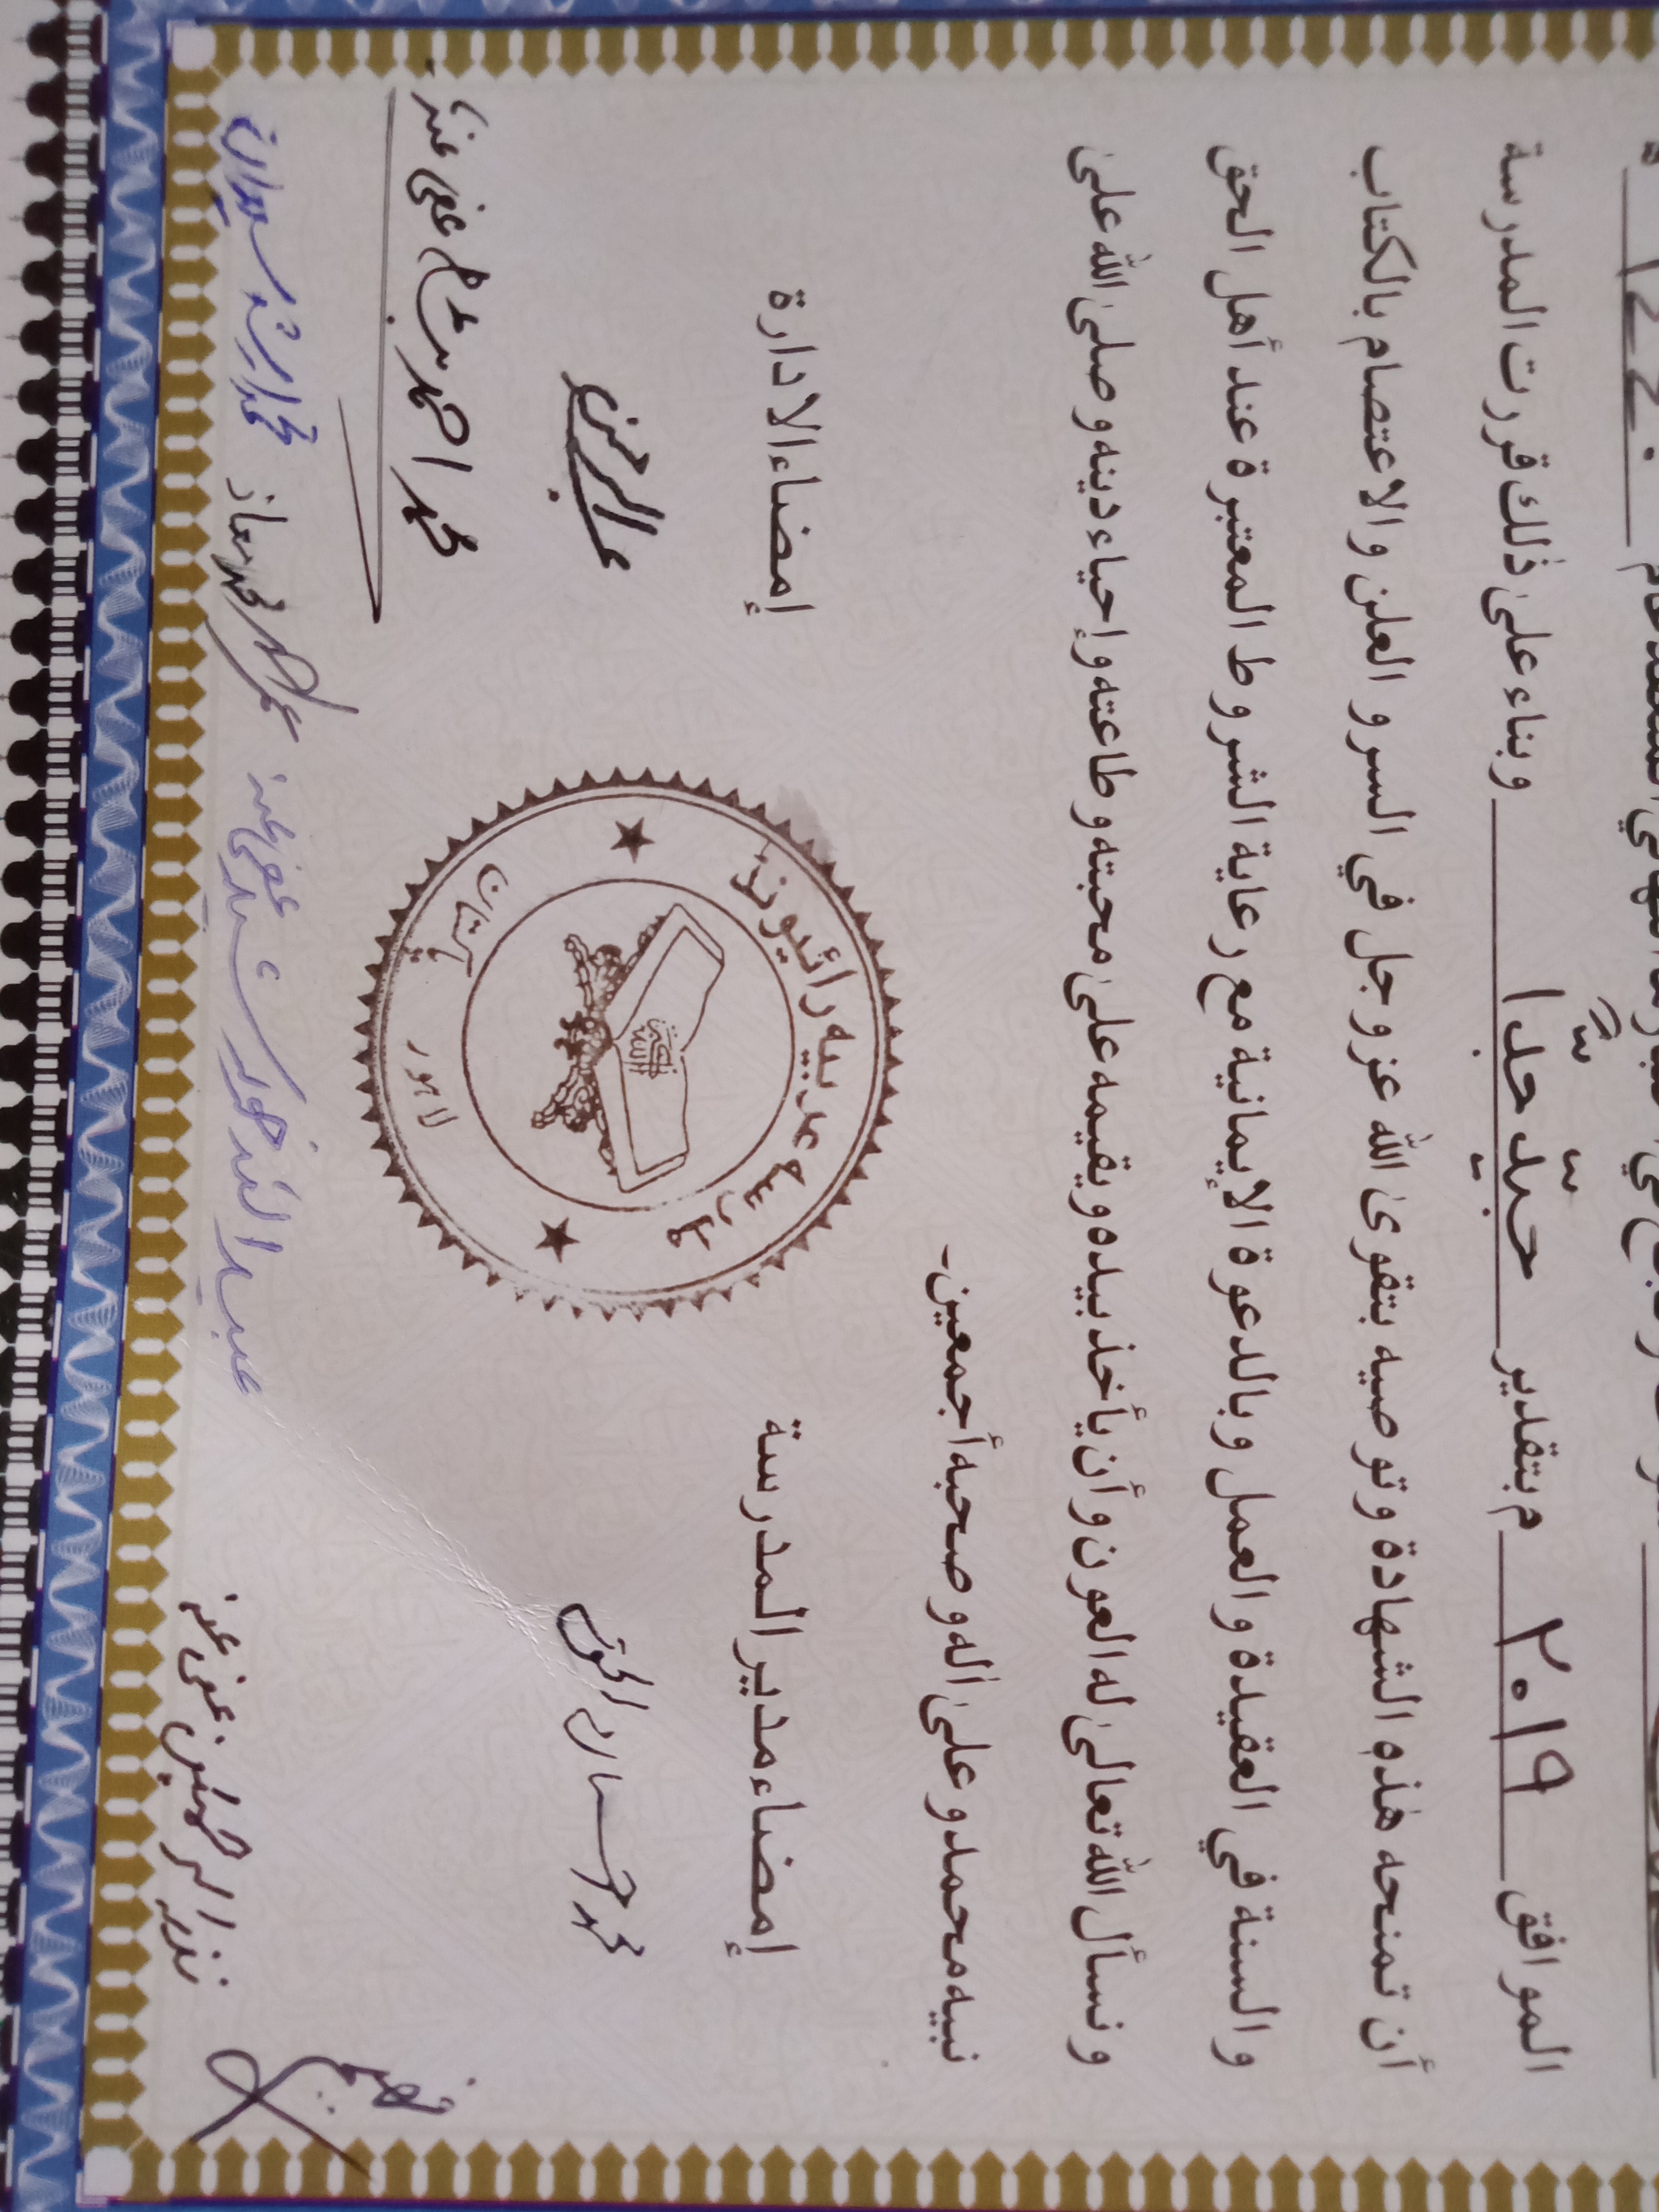 ١٤٤٠
الموافق ٢٠١٩ م بتقدير جيّد جدًّا وبناء على ذلك قررت المدرسة
أن تمنحه هذه الشهادة وتوصيه بتقوى الله عز وجل في السر و العلن والاعتصام بالكتاب
والسنة في العقيدة والعمل وبالدعوة الإيمانية مع رعاية الشروط المعتبرة عند أهل الحق
ونسأل الله تعالى له العون وأن يأخذ بيده ويقيمه على محبته وطاعته وإحياء دينه وصلى الله على
نبيه محمد وعلى اله وصحبه أجمعين۔
إمضاء مدير المدرسة
إمضاء الادارة
عربيه رائيوند
لاہور
عبدالرحمن
محمد احمد
نذر الرحمٰن عفى عنه
محمد معاذ